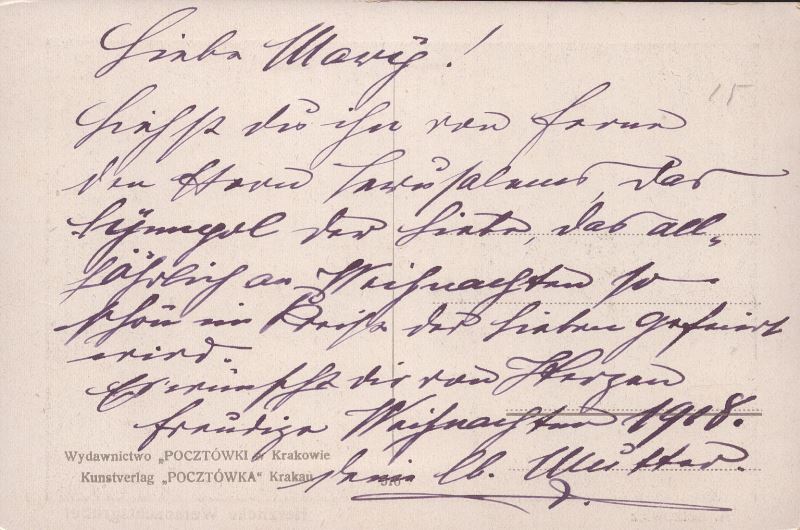 Liebe Mary!
15
Siehst du ihn von ferne
den Stern Jerusalems, das
Symbol der Liebe, das all-
jährlich an Weihnachten so
schön im Kreise der Lieben gefeiert
wird.
Es wünscht dir von Herzen
freudige Weihnachten 1918.
deine lb. Mutter.
Wydawnictwo „POCZTÓWKI w Krakowie
Kunstverlag „POCZTÓWKA“ Krakau